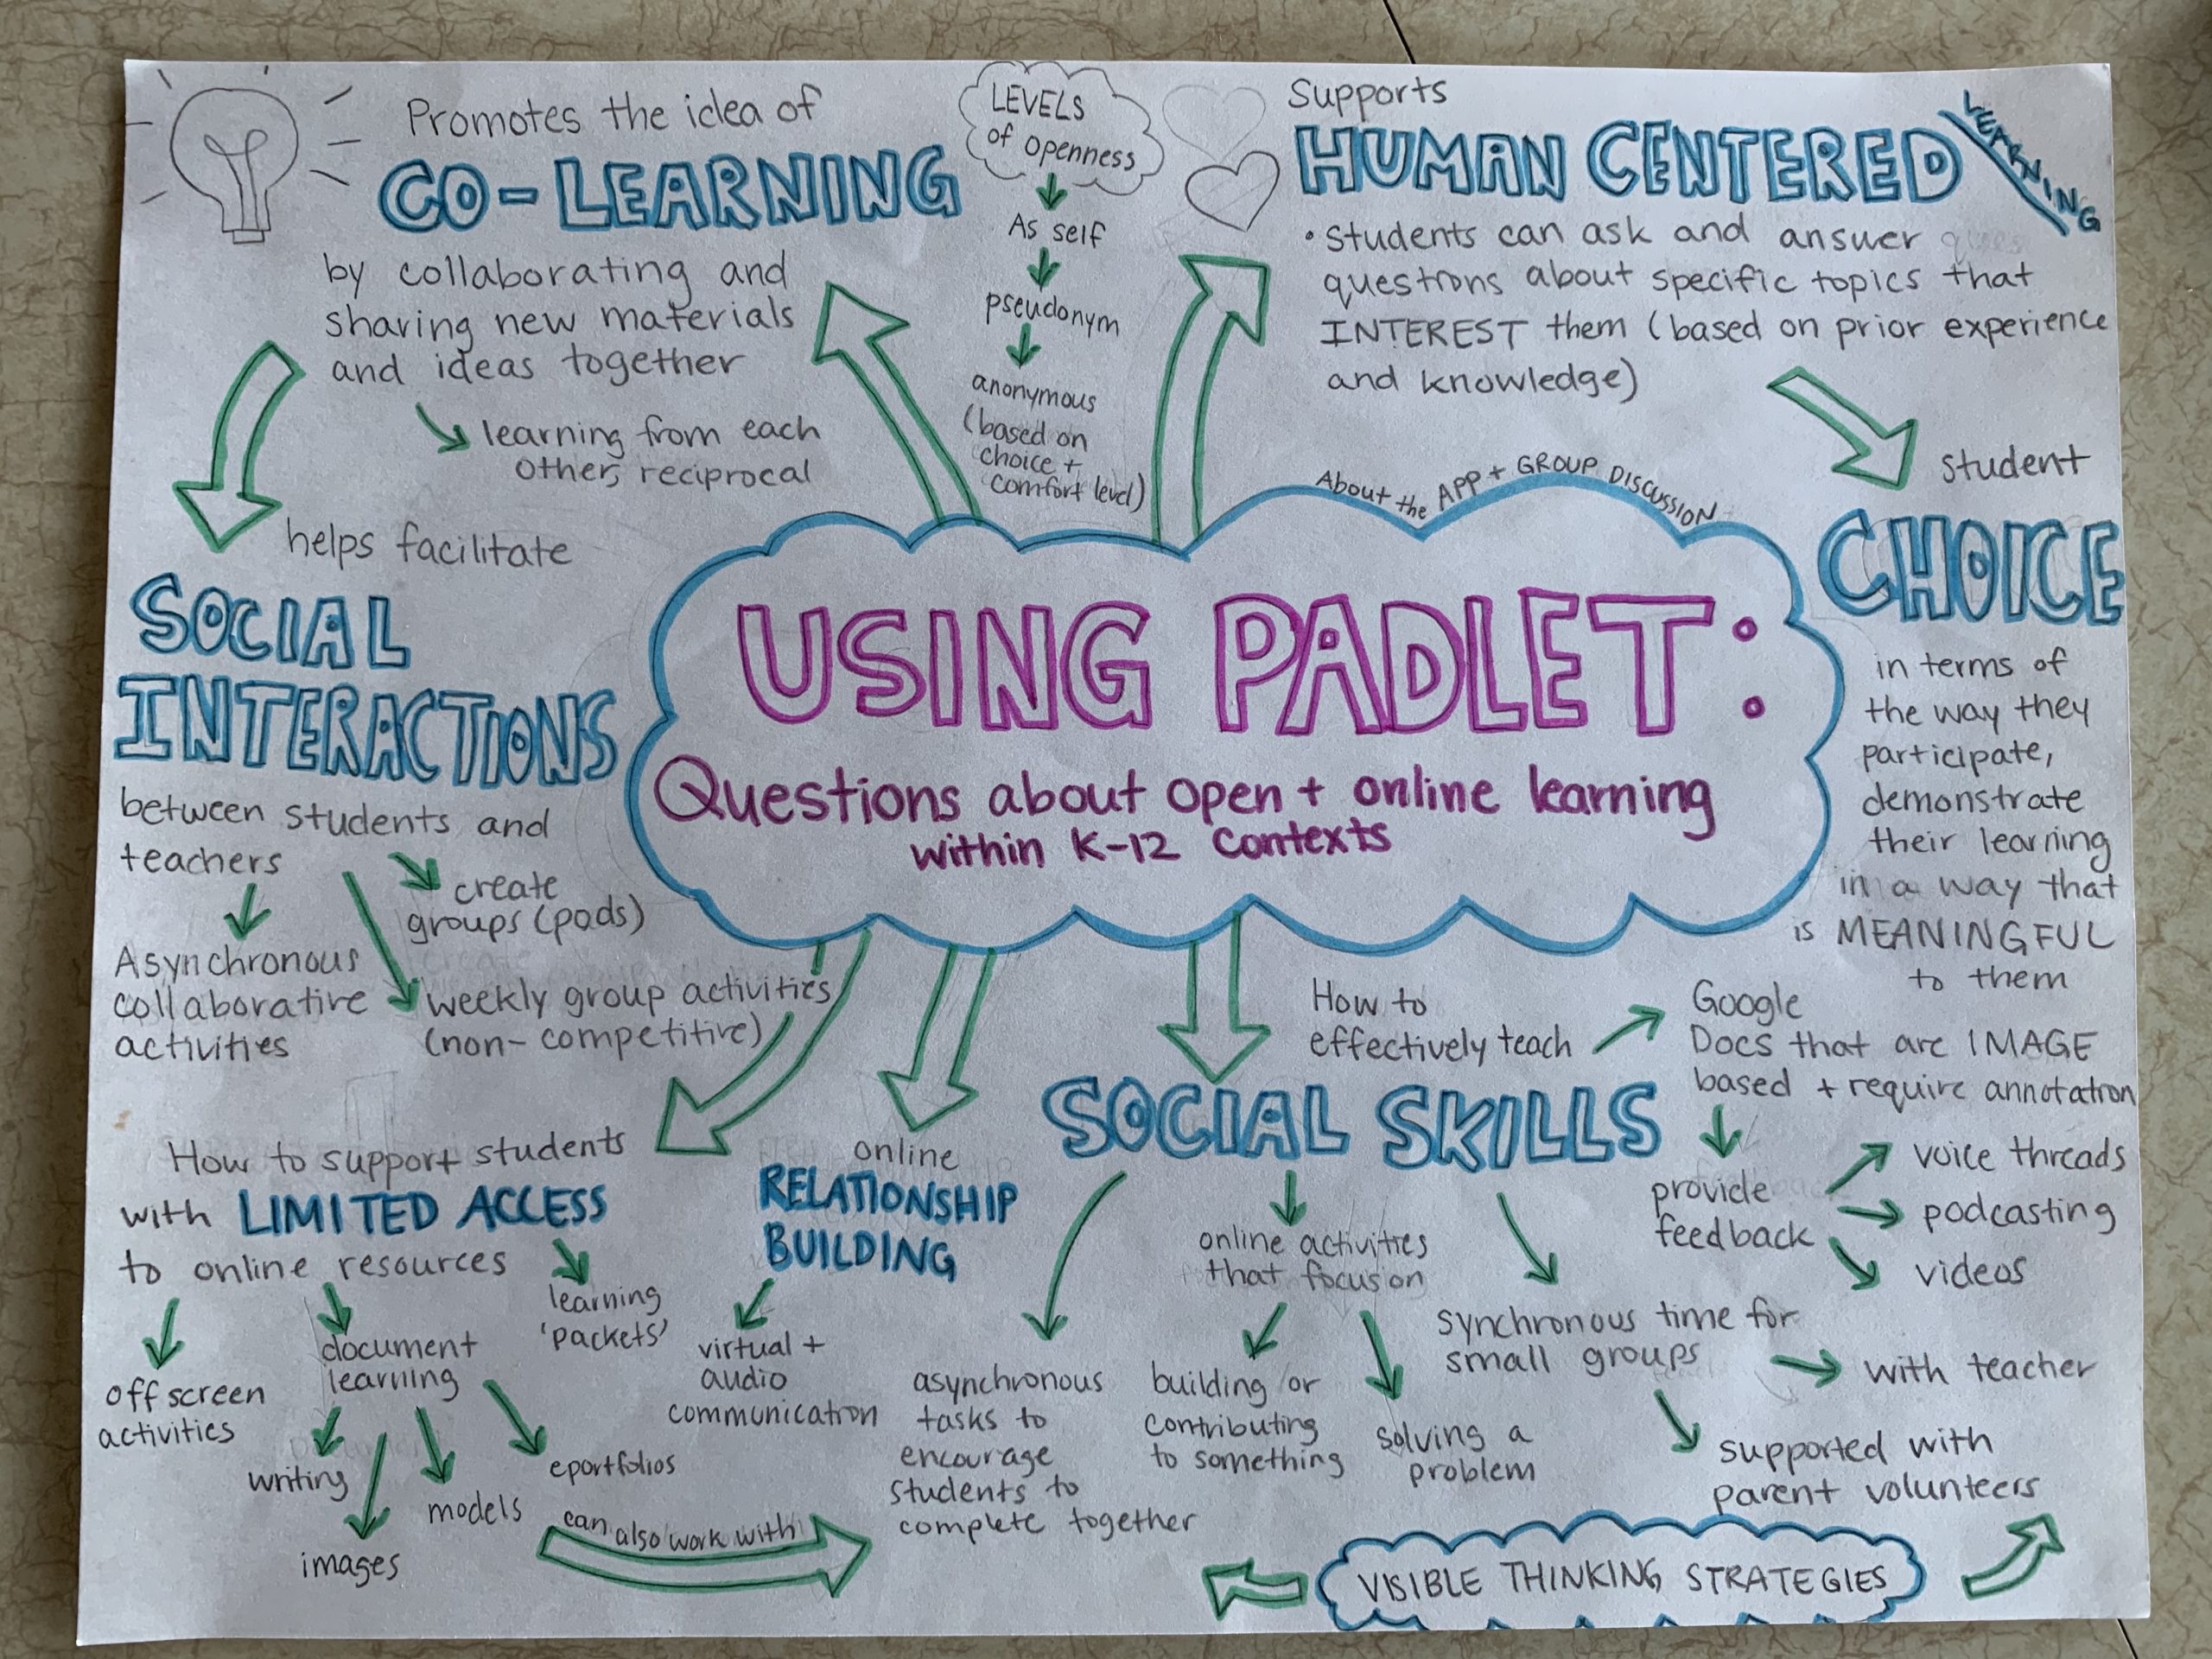 Promotes the idea of
CO-LEARNING
by collaborating and
sharing new materials
and ideas together
learning from each
other, reciprocal
LEVELS
of openness
As self
pseudonym
anonymous
(based on
choice +
comfort level)
Supports
HUMAN CENTERED
LEARNING
• Students can ask and answer ques
questions about specific topics that
INTEREST them (based on prior experience
and knowledge)
student
CHOICE
in terms of
the way they
participate,
demonstrate
their learning
in a way that
is MEANINGFUL
to them
About the APP + GROUP DISCUSSION
USING PADLET:
Questions about open + online learning
within K-12 contexts
helps facilitate
SOCIAL
INTERACTIONS
between students and
teachers
create
groups (pods)
Asynchronous
collaborative
activities
weekly group activities
(non-competitive)
How to support students
with LIMITED ACCESS
to online resources
off screen
activities
document
learning
learning
'packets'
writing
images
models
eportfolios
can also work with
online
RELATIONSHIP
BUILDING
virtual +
audio
communication
How to
effectively teach
SOCIAL SKILLS
asynchronous
tasks to
encourage
students to
complete together
online activities
that focus on
building or
contributing
to something
solving a
problem
synchronous time for
small groups
with teacher
supported with
parent volunteers
Google
Docs that are IMAGE
based + require annotation
provide
feedback
voice threads
podcasting
videos
VISIBLE THINKING STRATEGIES